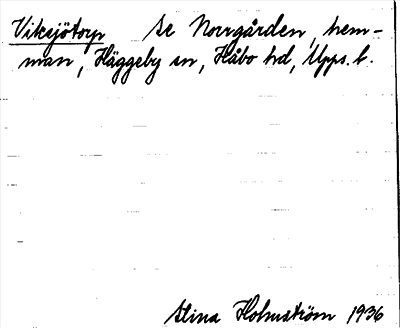 Viksjötorp Se Norrgården, hem-
man, Häggeby sn, Håbo hd, Upps. l.
Stina Holmström 1936